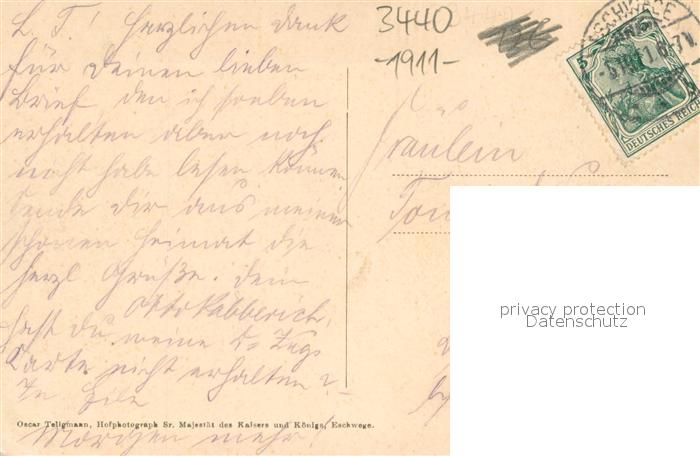 L. T! Herzlichen Dank
für Deinen lieben
Brief den ich soeben
erhalten aber noch
nicht habe lesen können
Sende Dir aus meiner
schönen Heimat die
herzl Grüße. Dein
Otto
hast Du meine
Karte nicht erhalten?
In Eile
Oscar Tellgmann, Hofphotograph Sr. Majestät des Kaisers und Königs, Eschwege.
Morgen mehr!
3440
-1911-
ESCHWEGE
5
DEUTSCHES REICH
Fräulein
privacy protection
Datenschutz